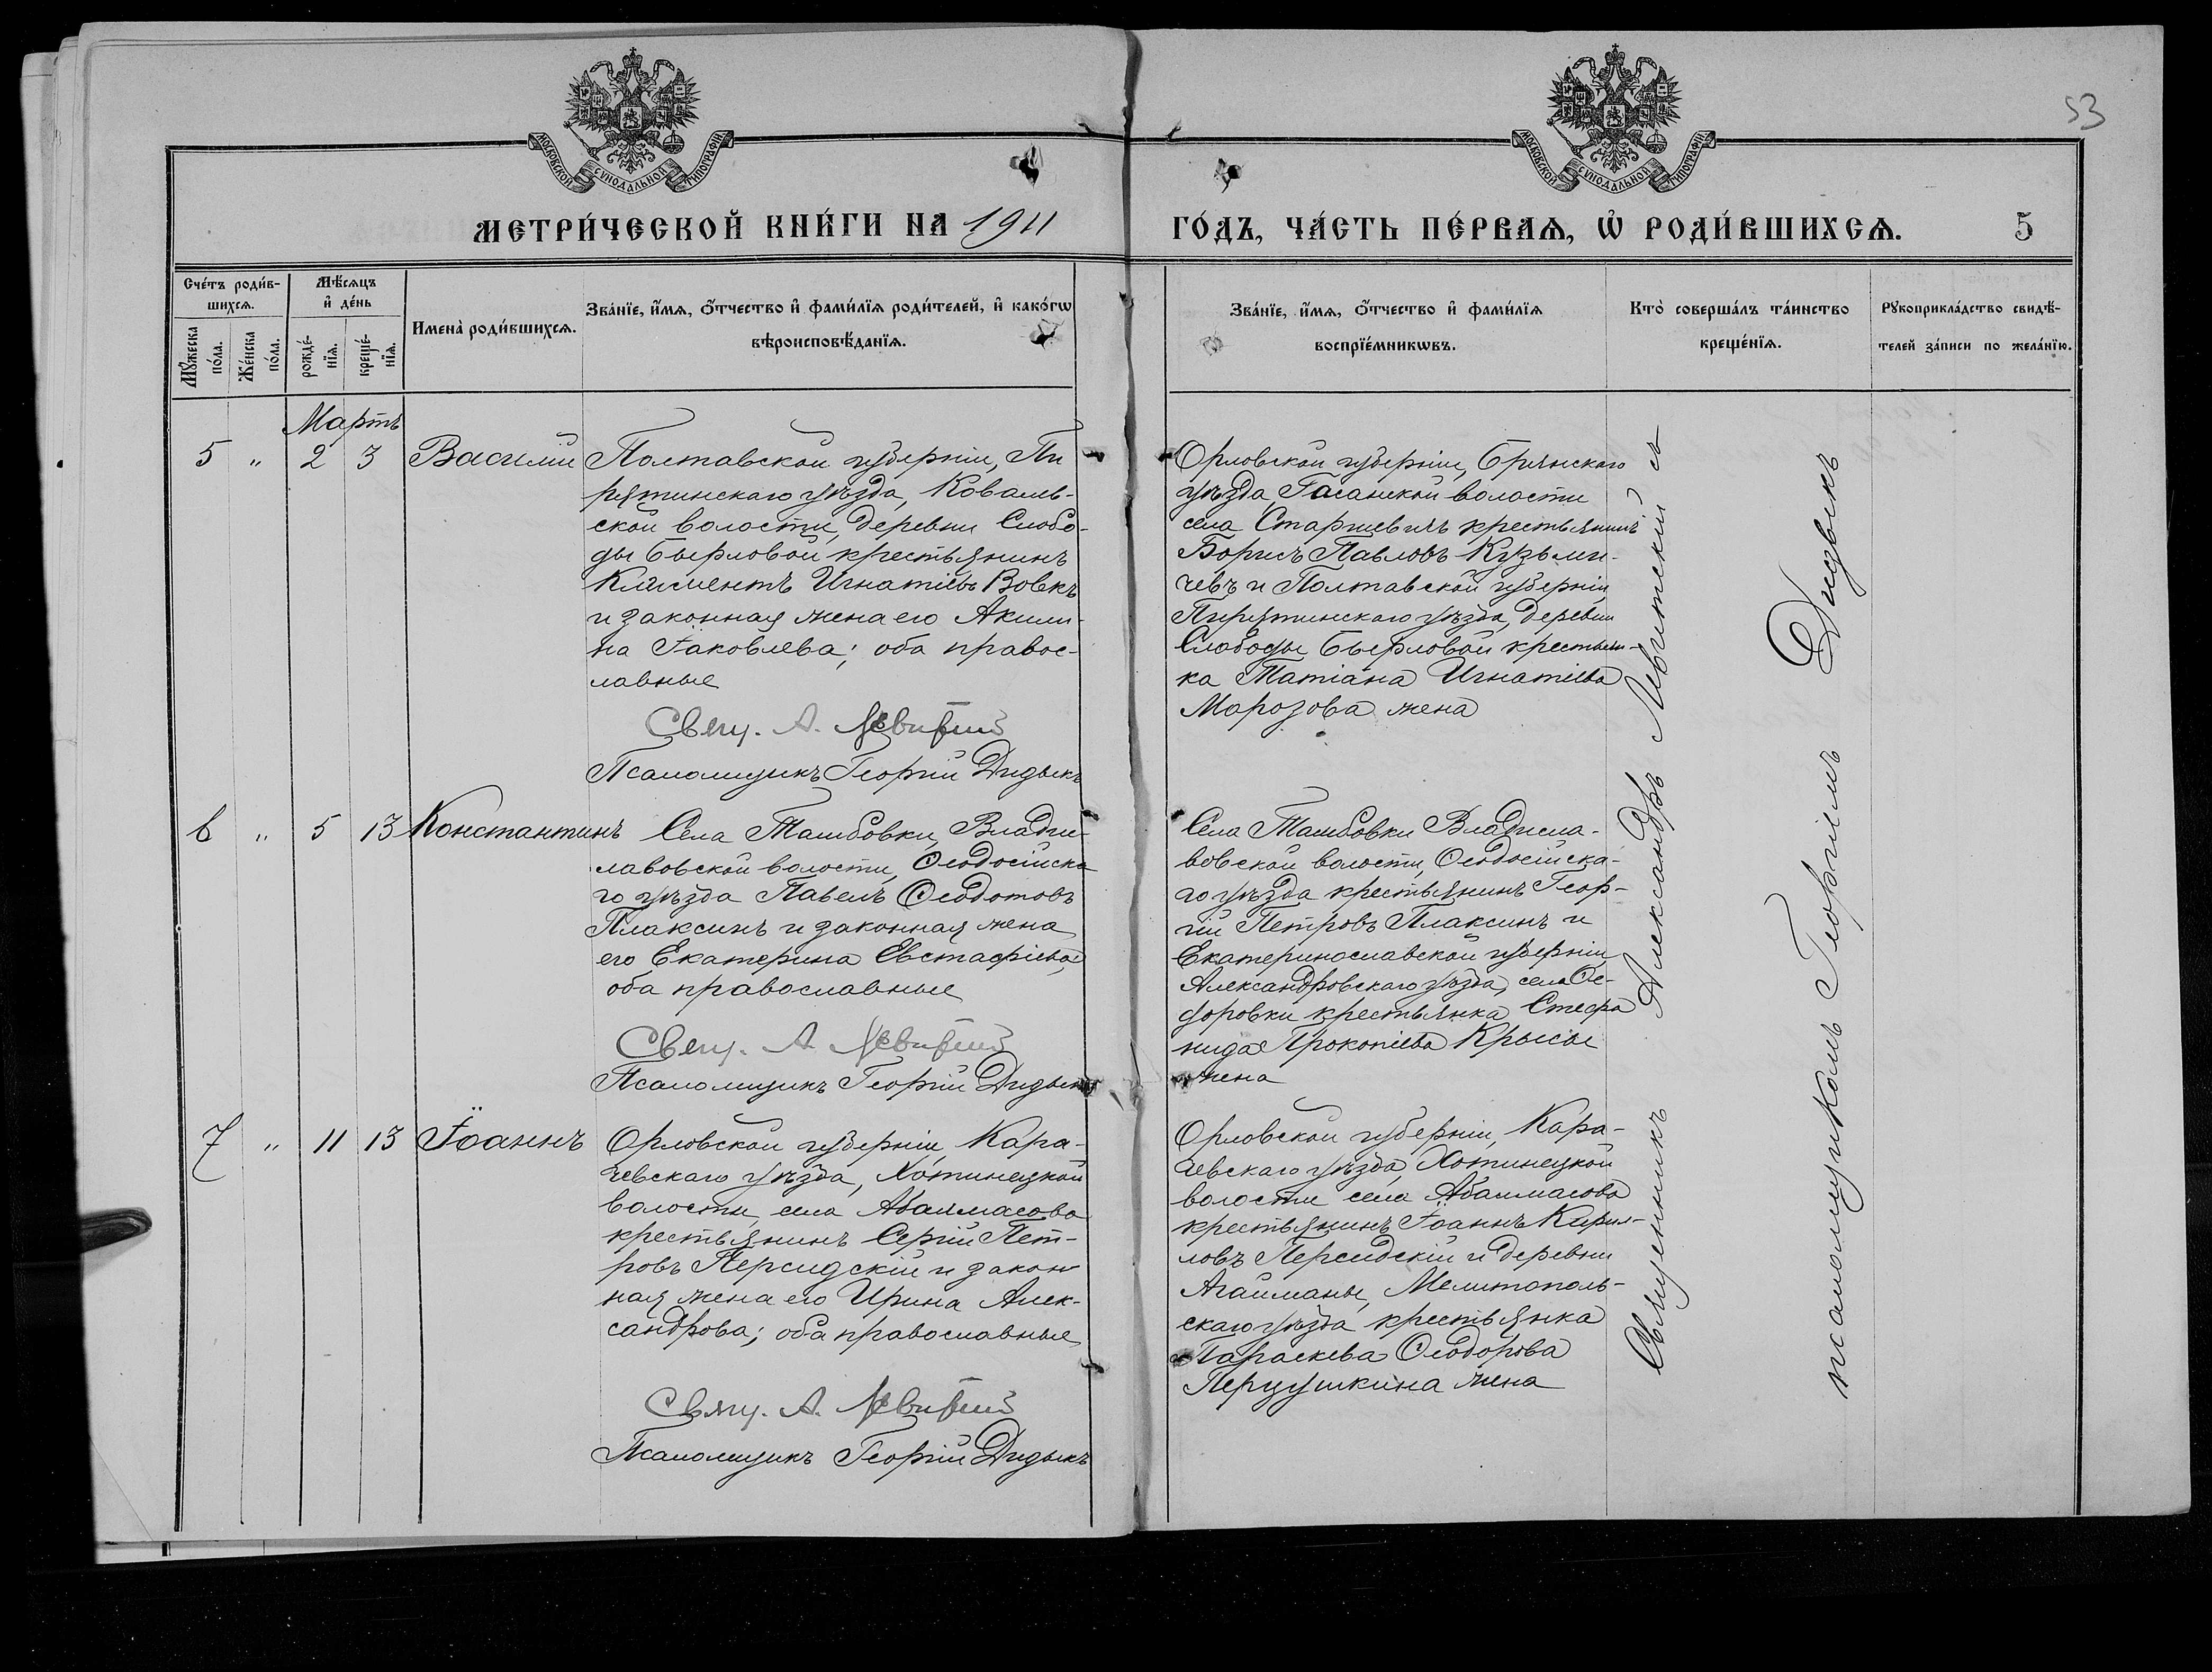 53
МОСКОВСКОЙ СѴНОДАЛЬНОЙ ТИПОГРАФІИ
МОСКОВСКОЙ СѴНОДАЛЬНОЙ ТИПОГРАФІИ
МЕТРИ́ЧЕСКОЙ КНИ́ГИ НА 1911 ГО́ДЪ, ЧА́СТЬ ПЕ́РВАѦ, Ѡ҆ РОДИ́ВШИХСѦ. 5
Сче́тъ роди́в-
шихсѧ.
Мꙋ́жеска
по́ла.
Же́нска
по́ла.
Мѣ́сѧцъ
и҆ де́нь
рожде́-
нїѧ.
креще́-
нїѧ.
Имена̀ роди́вшихсѧ.
Зва́нїе, и҆́мѧ, ѻ҆́тчество и҆ фами́лїѧ роди́телей, и҆ како́гѡ
вѣроисповѣ́данїѧ.
Зва́нїе, и҆́мѧ, ѻ҆́тчество и҆ фами́лїѧ
воспрїе́мникѡвъ.
Кто̀ соверша́лъ та́инство
креще́нїѧ.
Рꙋкоприкла́дство свидѣ́-
телей за́писи по жела́нїю.
Мартъ
5 " 2 3 Василій
Полтавской губерніи, Пи
рятинскаго уѣзда, Коваль-
ской волости, деревни Слобо-
ды Бырловой крестьянинъ
Климентъ Игнатіевъ Вовкъ
и законная жена его Акили-
на Іаковлева; оба правос-
лавные
Свящ. А. Левитскій
Псаломщикъ Георгій Дидыкъ
Орловской губерніи, Брянскаго
уѣзда волости
села крестьянинъ
Борисъ Павловъ Кузьми-
чевъ и Полтавской губерніи
Пирятинскаго уѣзда, деревни
Слободы Бырловой крестьян-
ка Татіана Игнатіева
Морозова жена
6 " 5 13 Константинъ
Села Тамбовки, Влади-
лавовской волости, Ѳеодосійска
го уѣзда Павелъ Ѳеодотовъ
Плаксинъ и законная жена
его Екатерина Евстафіева,
оба православные
Свящ. А. Левитскій
Псаломщикъ Георгій Дидыкъ
Села Тамбовки Владисла-
вовской волости, Ѳеодосійска-
го уѣзда крестьянинъ Геор-
гій Петровъ Плаксинъ и
Екатеринославской губерніи
Александровскаго уѣзда, села Ѳе-
доровки крестьянка Стефа
нида Прокопіева Крысы
жена
7 " 11 13 Іоаннъ
Орловской губерніи, Кара-
чевскаго уѣзда, Хотинецкой
волости, села Абалмасова
крестьянинъ Сергій Пет-
ровъ Персидскій и закон
ная жена его Ирина Алек-
сандрова; оба православные
Свящ. А. Левитскій
Псаломщикъ Георгій Дидыкъ
Орловской губерніи, Кара-
чевскаго уѣзда, Хотинецкой
волости села Абалмасова
крестьянинъ Іоаннъ Кирил-
ловъ Персидскій и деревни
Агайманы, Мелитополь-
скаго уѣзда крестьянка
Параскева Ѳеодорова
Перцушкина жена
Священникъ Александръ Левитскій съ
псаломщикомъ Георгіемъ Дидыкъ